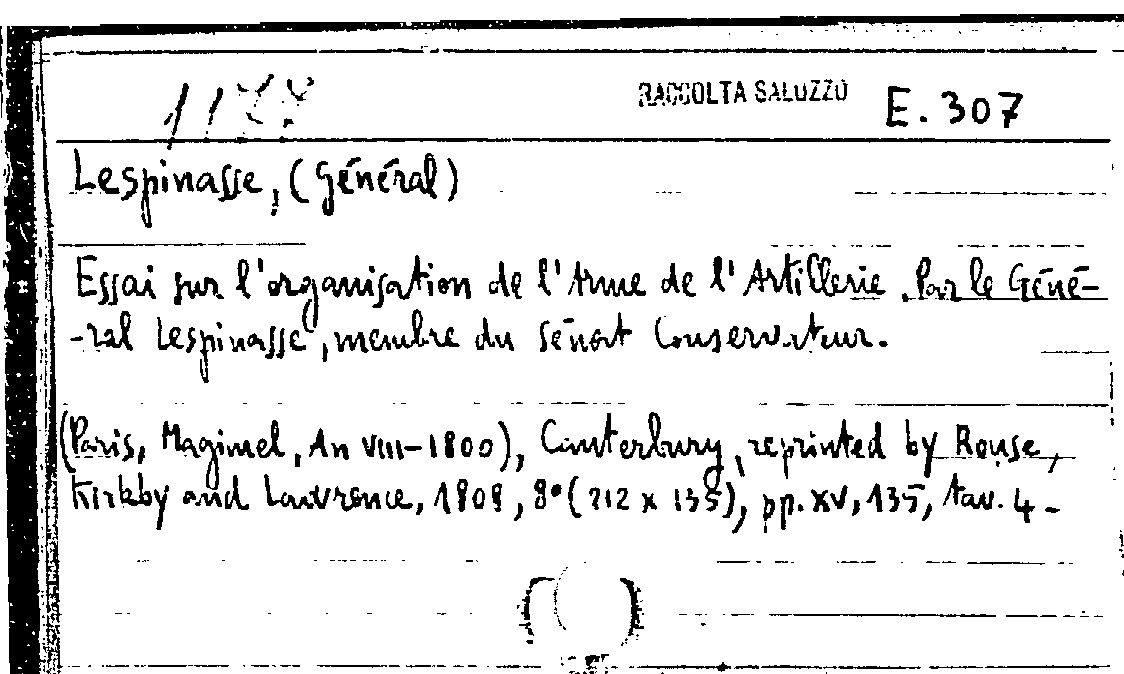 RACCOLTA SALUZZO E. 307
Lespinasse, (Général)
Essai sur l'organisation de l'Arme de l'Artillerie. Par le Géné-
-ral Lespinasse, membre du Sénat Conservateur.
(Paris, Magimel, An VIII-1800), Canterbury, reprinted by Rouse,
Kirkby and Lawrence, 1808, 8° (212 x 135), pp. XV, 135, tav. 4 -